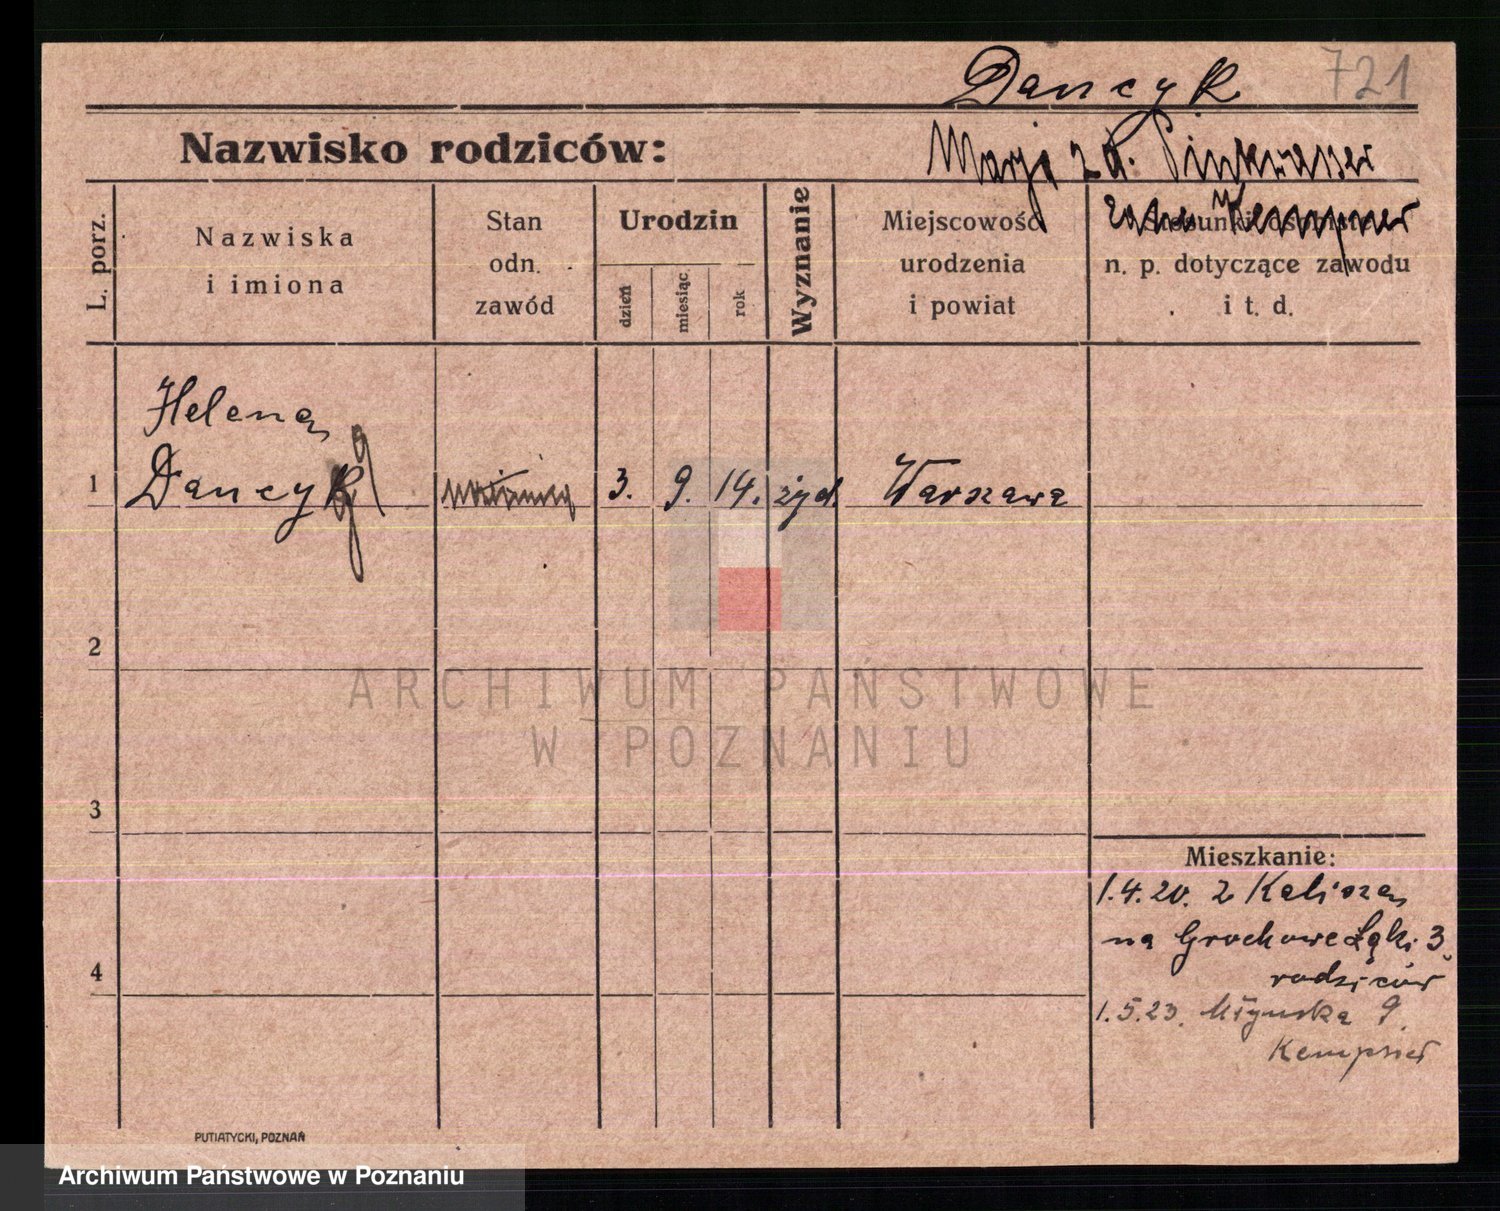 Dancyk 721
Nazwisko rodziców:
Marja zd. Pinkwasser
zam. Kempner
L. porz.
Nazwiska
i imiona
Stan
odn.
zawód
Urodzin
dzień
miesiąc
rok
Wyznanie
Miejscowość
urodzenia
i powiat
Stosunki osobiste
n. p. dotyczące zawodu
i t. d.
Helena
1 Dancyk 3. 9. 14. żyd. Warszawa
2
3
4
Mieszkanie:
1.4.20. z Kalisza
na Grochowe Łąki 3
rodziców
1.5.23. Młyńska 9.
Kempner
PUTIATYCKI, POZNAŃ
ARCHIWUM PAŃSTWOWE
W POZNANIU
Archiwum Państwowe w Poznaniu